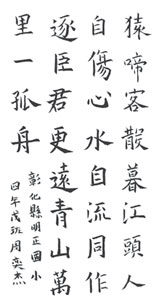 猿啼客散暮江頭人
自傷心水自流同作
逐臣君更遠青山萬
里一孤舟
彰化縣明正國小
四年戊班周奕杰